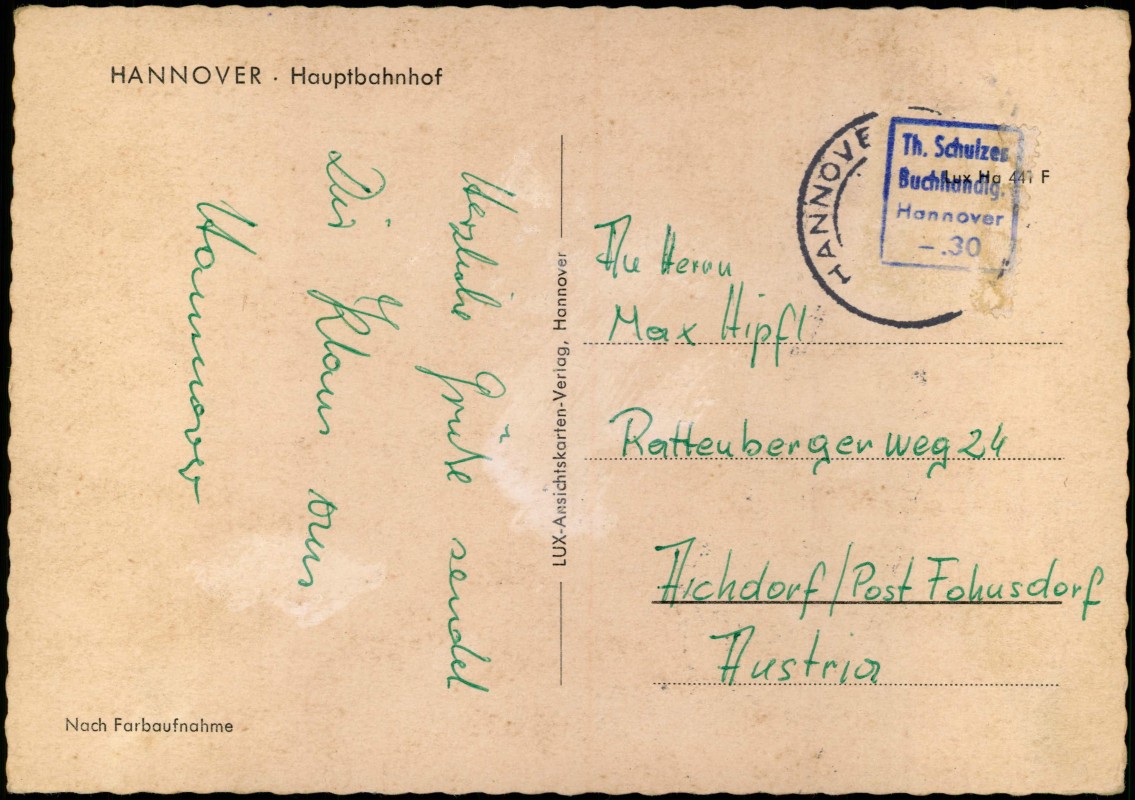 HANNOVER · Hauptbahnhof
Herzliche Grüße sendet
Dir Klaus aus
Hannover
Nach Farbaufnahme
LUX-Ansichtskarten-Verlag, Hannover
HANNOVE
Th. Schulzes
Buchhandlg.
Hannover
-.30
Lux Ha 441 F
An Herrn
Max Hipfl
Rattenbergerweg 24
Aichdorf/Post Fohnsdorf
Austria